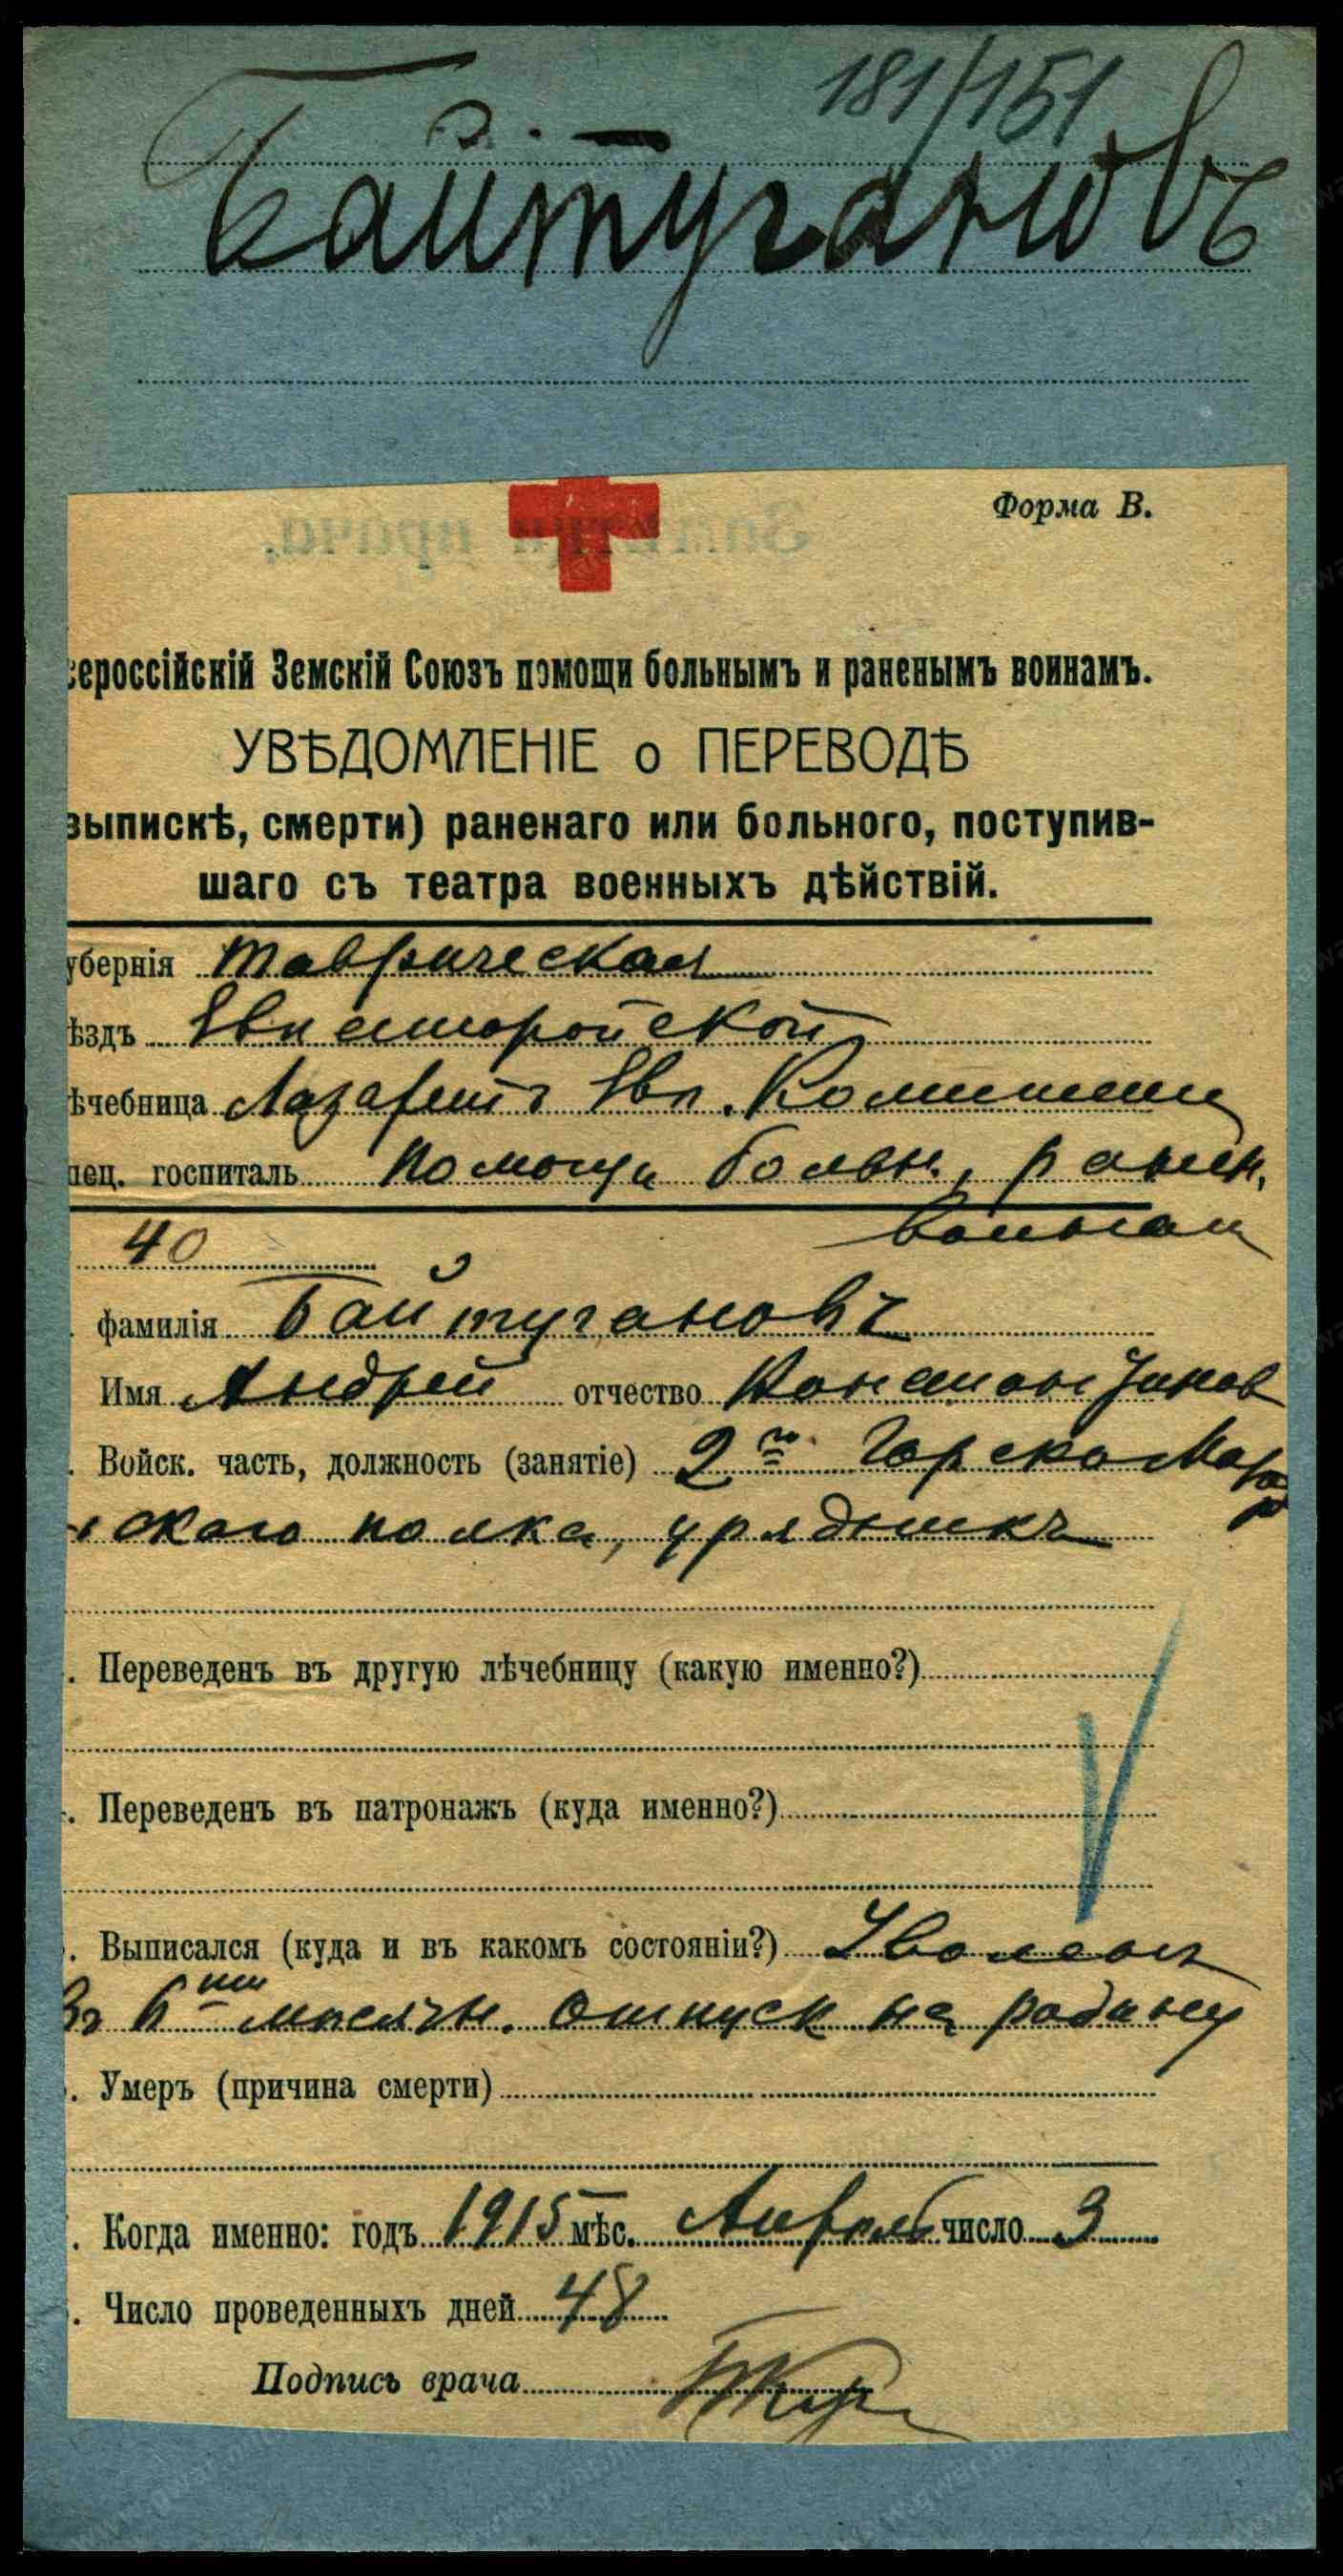 181/151
Байтугановъ
Форма В.
сероссійскій Земскій Союзъ помощи больнымъ и раненымъ воинамъ.
УВѢДОМЛЕНІЕ о ПЕРЕВОДѢ
выпискѣ, смерти) раненаго или больного, поступив-
шаго съ театра военныхъ дѣйствій.
убернія Таврическая
ѣздъ Евпаторійской
ѣчебница Лазаретъ Евп. Комитета
пец. госпиталь помощи больн. ранен.
воинам
40
фамилія Байтугановъ
Имя Андрей отчество Константинов
Войск. часть, должность (занятіе) 2го Горско Мозд
скаго полка, урядникъ
. Переведенъ въ другую лѣчебницу (какую именно?)
. Переведенъ въ патронажъ (куда именно?)
. Выписался (куда и въ какомъ состояніи?) Уволен
Въ 6ти мѣсячн. отпуск на родину
. Умеръ (причина смерти)
. Когда именно: годъ 1915 мѣс. Апрѣль число 3
. Число проведенныхъ дней 48
Подпись врача